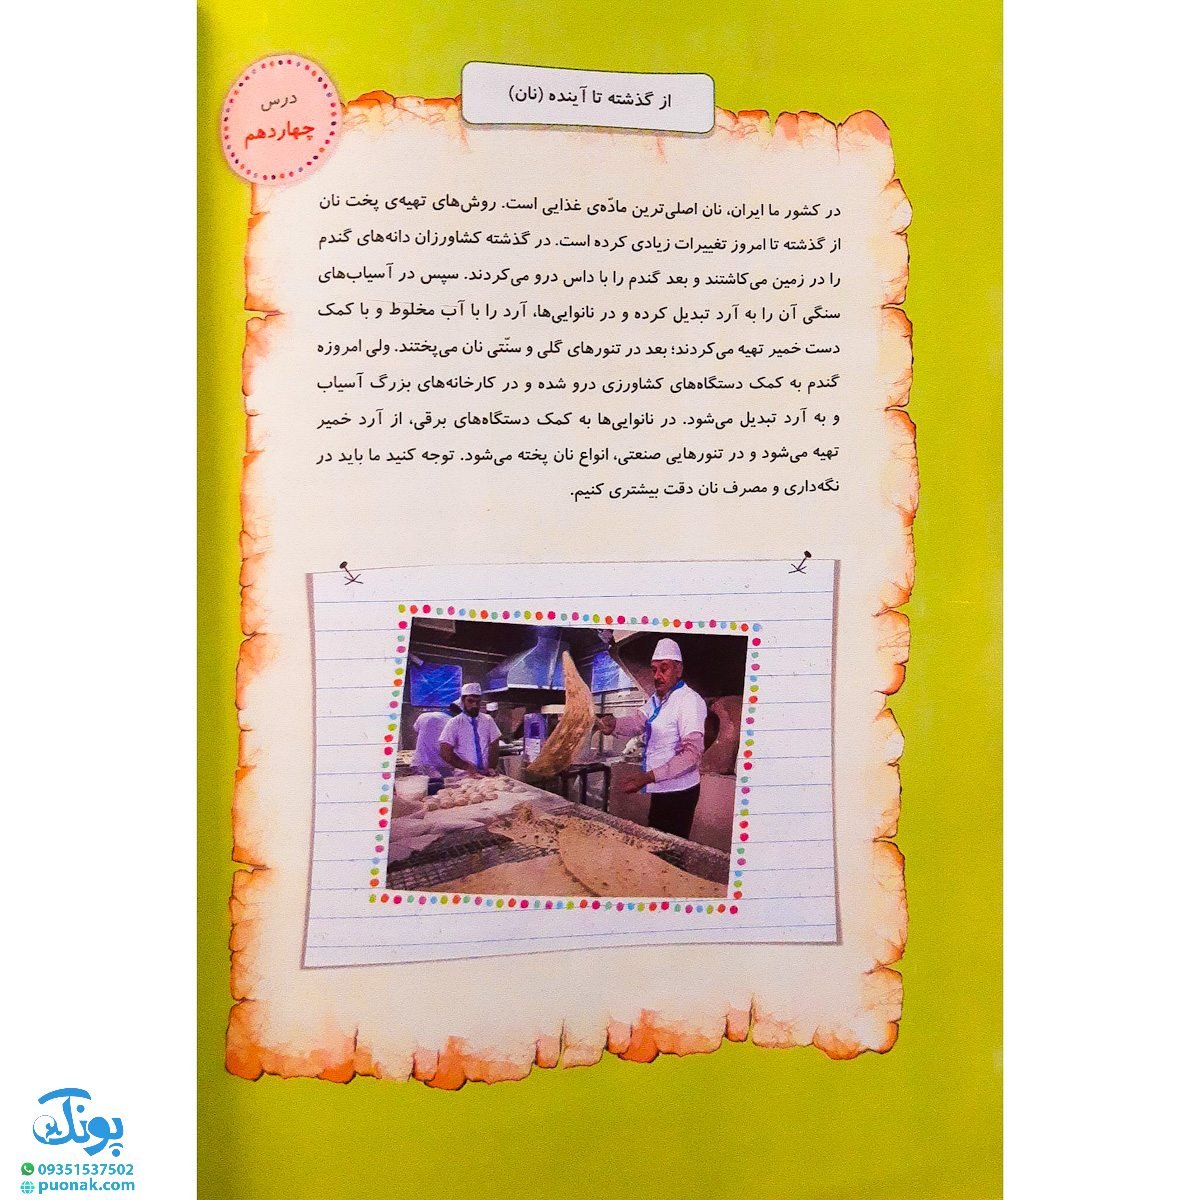 درس
چهاردهم
از گذشته تا آینده (نان)
در کشور ما ایران، نان اصلی‌ترین مادّه‌ی غذایی است. روش‌های تهیه‌ی پخت نان
از گذشته تا امروز تغییرات زیادی کرده است. در گذشته کشاورزان دانه‌های گندم
را در زمین می‌کاشتند و بعد گندم را با داس درو می‌کردند. سپس در آسیاب‌های
سنگی آن را به آرد تبدیل کرده و در نانوایی‌ها، آرد را با آب مخلوط و با کمک
دست خمیر تهیه می‌کردند؛ بعد در تنورهای گلی و سنّتی نان می‌پختند. ولی امروزه
گندم به کمک دستگاه‌های کشاورزی درو شده و در کارخانه‌های بزرگ آسیاب
و به آرد تبدیل می‌شود. در نانوایی‌ها به کمک دستگاه‌های برقی، از آرد خمیر
تهیه می‌شود و در تنورهایی صنعتی، انواع نان پخته می‌شود. توجه کنید ما باید در
نگه‌داری و مصرف نان دقت بیشتری کنیم.
پونک
09351537502
puonak.com